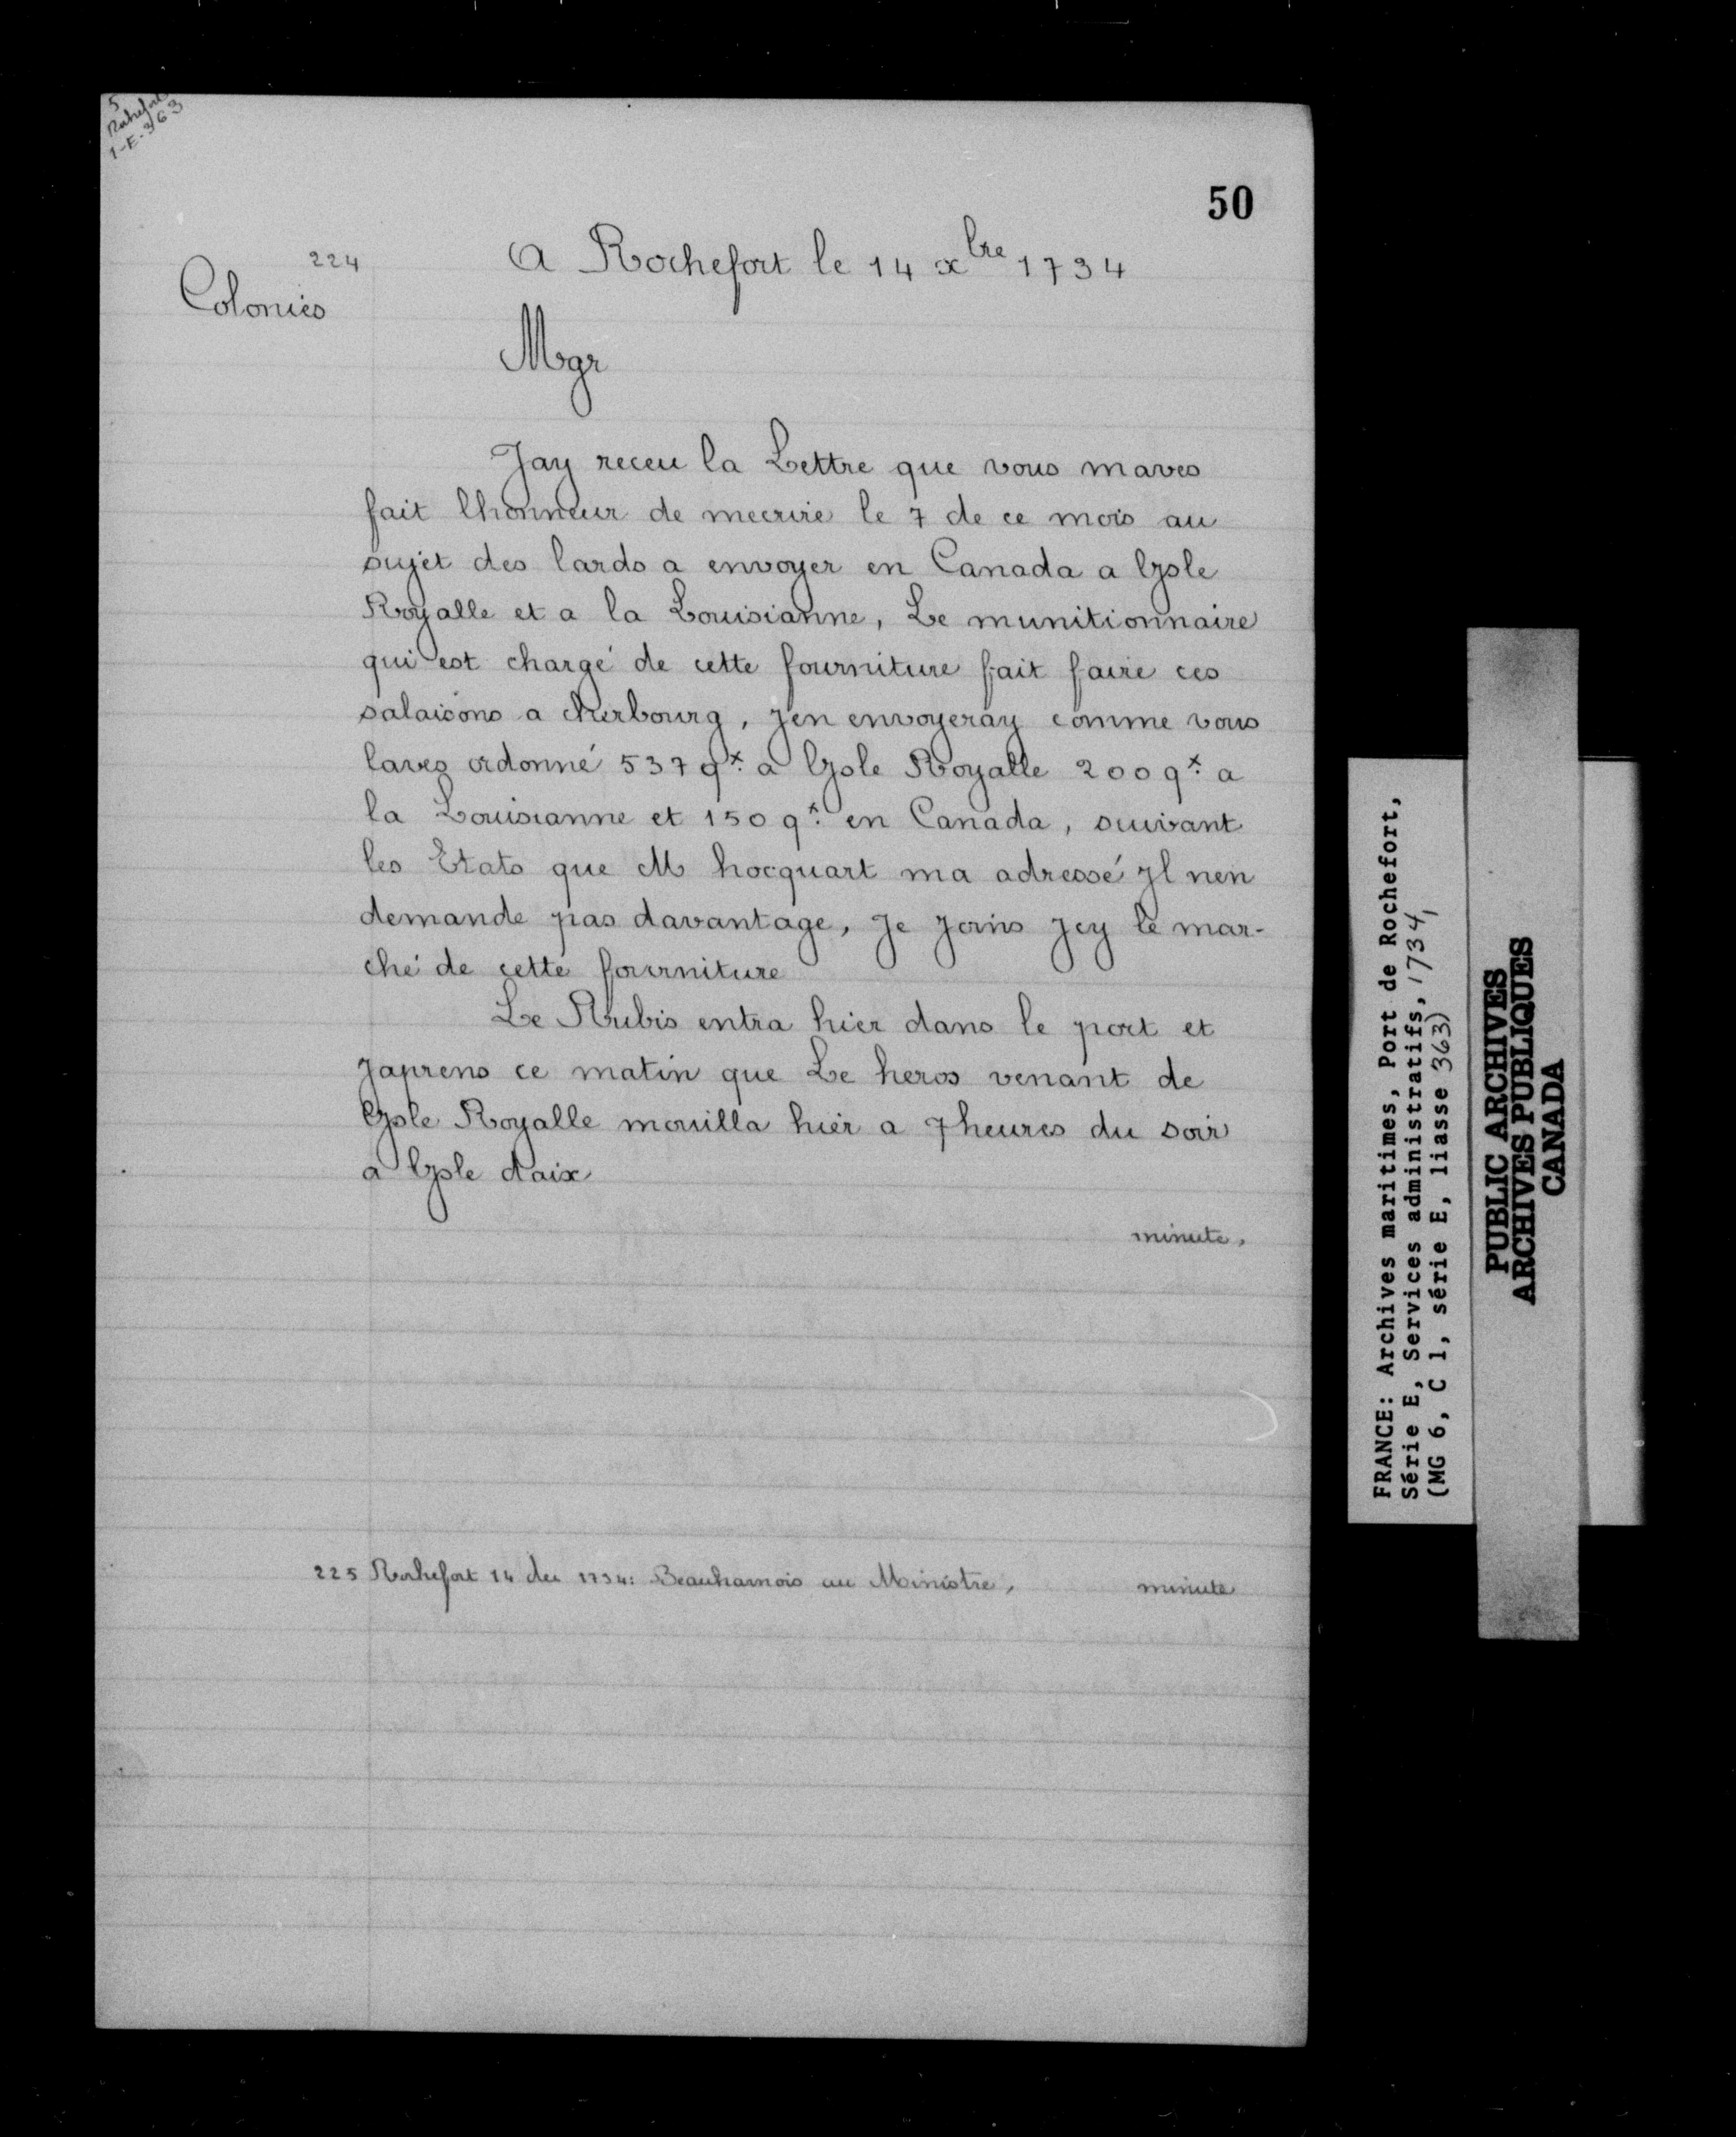 5
Rochefort
1-E-363
50
224
Colonies
A Rochefort le 14 xbre 1734
Mgr
Jay receu la Lettre que vous maves
fait lhonneur de mecrire le 7 de ce mois au
sujet des lards a envoyer en Canada a lysle
Royalle et a la Louisianne, Le munitionnaire
qui est chargé de cette fourniture fait faire ces
salaisons a cherbourg, jen envoyeray comme vous
laves ordonné 537 qx. a lysle Royalle 200 qx. a
la Louisianne et 150 qx. en Canada, suivant
les Etats que M hocquart ma adressé yl nen
demande pas davantage, Je joins Jcy le mar-
ché de cette fourniture
Le Rubis entra hier dans le port et
Japrens ce matin que Le heros venant de
lysle Royalle mouilla hier a 7 heures du soir
a lysle daix
minute.
225 Rochefort 14 dec 1734: Beauharnois au Ministre, minute
FRANCE: Archives maritimes, Port de Rochefort,
Série E, Services administratifs, 1734,
(MG 6, C 1, série E, liasse 363)
PUBLIC ARCHIVES
ARCHIVES PUBLIQUES
CANADA